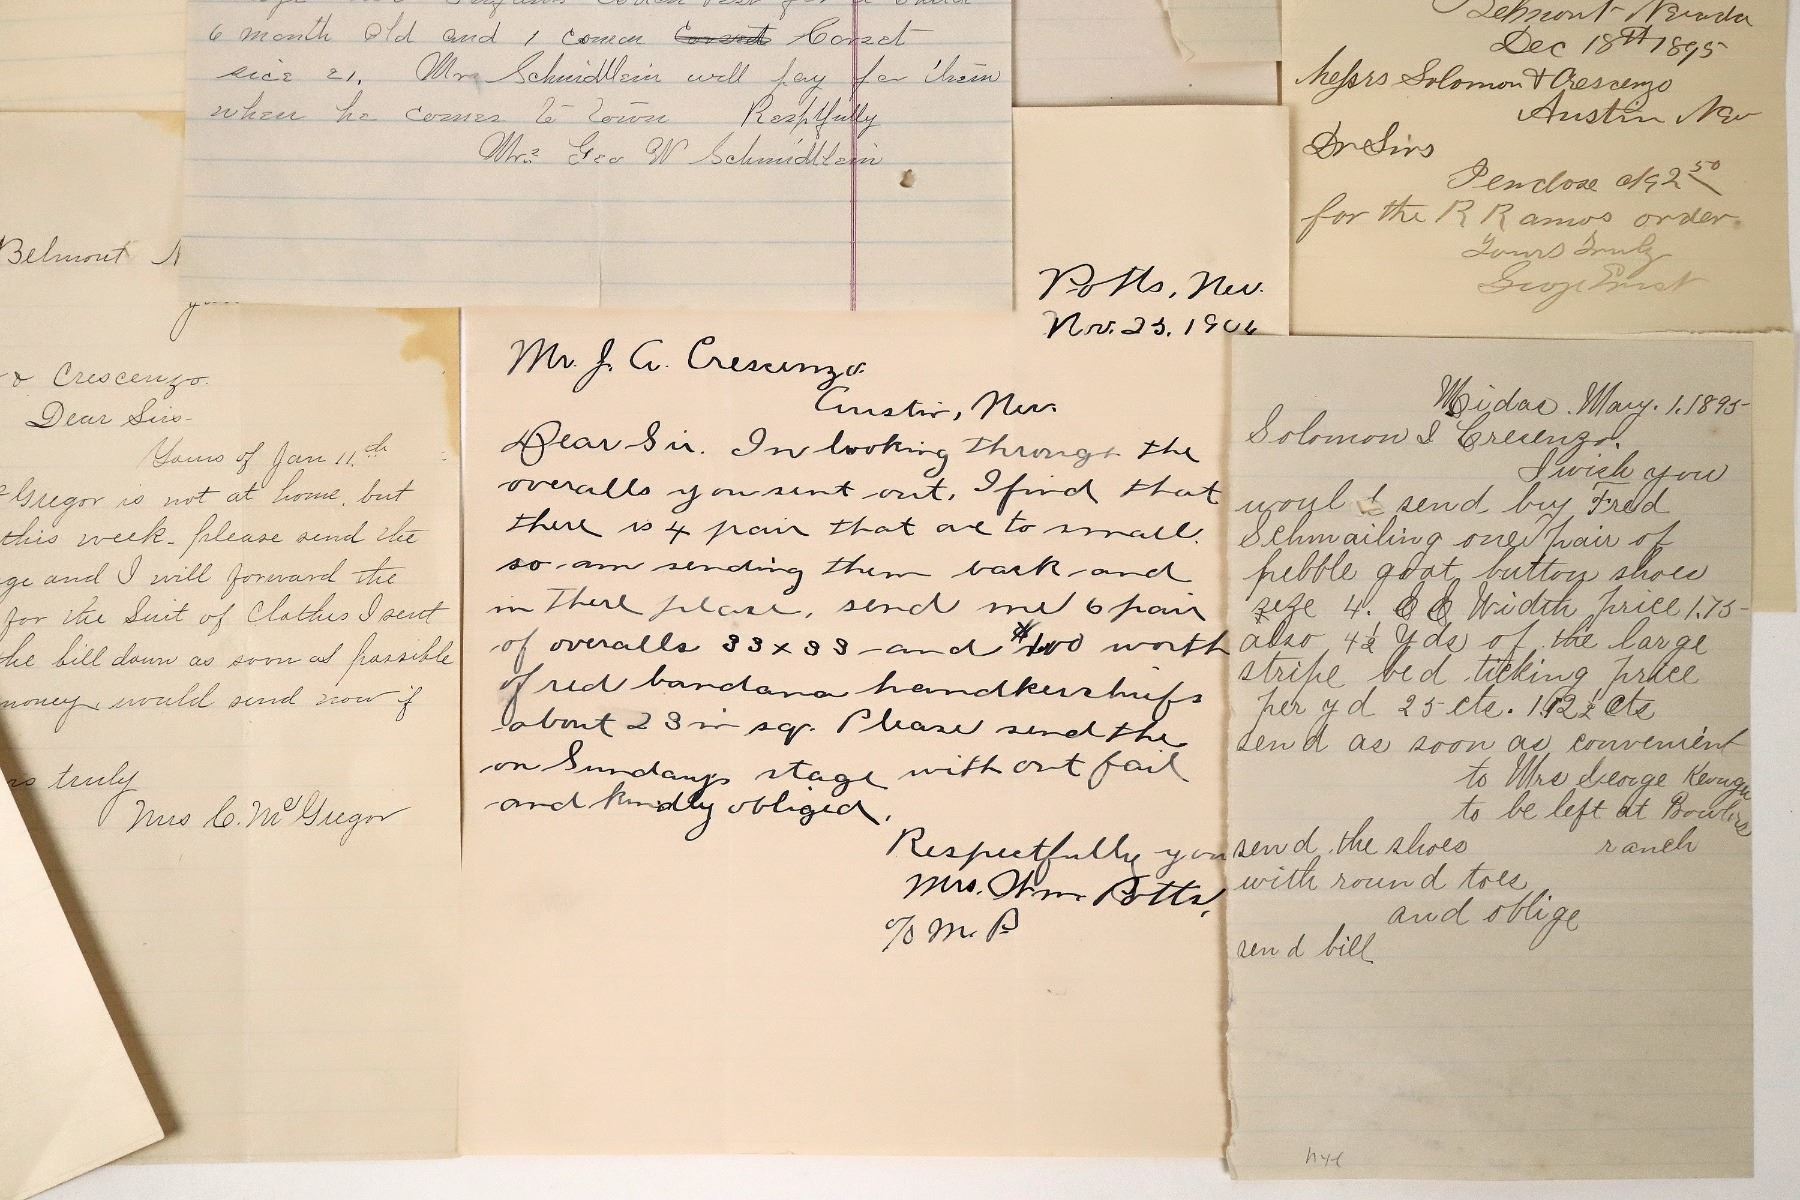 6 month Old and 1 Corset
size 21. Mr Schmidtlein will pay for them
when he comes to town Resptfully
Mrs Geo W Schmidtlein
Belmont Nevada
Dec 18th 1895
Messrs Solomon & Crescenzo
Austin Nev
Dr Sirs
I enclose 2 50
for the R Ramos order
Yours Truly
Belmont N
& Crescenzo.
Dear Sirs-
Yours of Jan 11th
Gregor is not at home, but
this week- please send the
ge and I will forward the
for the Suit of Clothes I sent
the bill down as soon as possible
money, would send now if
rs truly
Mrs C. McGregor
Potts, Nev.
Nov. 23. 1906
Mr. J. A. Crescenzo.
Austin, Nev.
Dear Sir. In looking through the
overalls you sent out, I find that
there is 4 pair that are to small.
so am sending them back and
in there place, send me 6 pair
of overalls 33x33 and $1.00 worth
of red bandana handkerchiefs
about 23 in sq. Please send the
on Sundays stage without fail
and kindly obliged,
Respectfully you
Mrs. Wm Potts,
% M. P
Midas. May. 1. 1895-
Solomon & Crecenzo.
I wish you
would send by Fred
Schmailing one pair of
pebble goat button shoes
size 4. E E Width price 1.75-
also 4½ Yds of the large
stripe bed ticking price
per yd 25 cts. 1.12½ Cts
send as soon as convenient
to Mrs George
to be left at Bowlers
send the shoes ranch
with round toes
and oblige
send bill